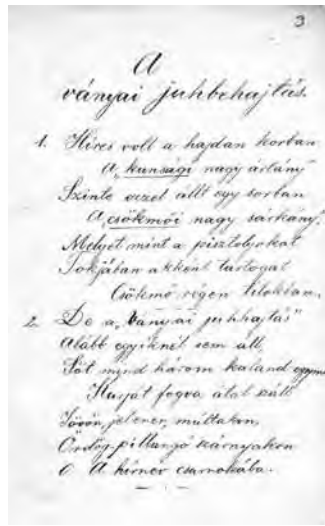 3
A
ványai juhbehajtás.
1. Híres volt a hajdan korban
A „kunsági nagy ártány"
Szinte ezzel állt egy sorban
A „csökmői nagy sárkány".
Melyet mint a pisztolyokat
Tokjában akként tartogat
Csökmő régen titokban.
2. De a „Ványai juhhajtás"
Alább egyiknél sem áll,
Sőt mind három kaland
Karját fogva által száll
Jövőn, jelenen, múltakon,
Ördög-pillangó szárnyakon
A hírnév csarnokába.